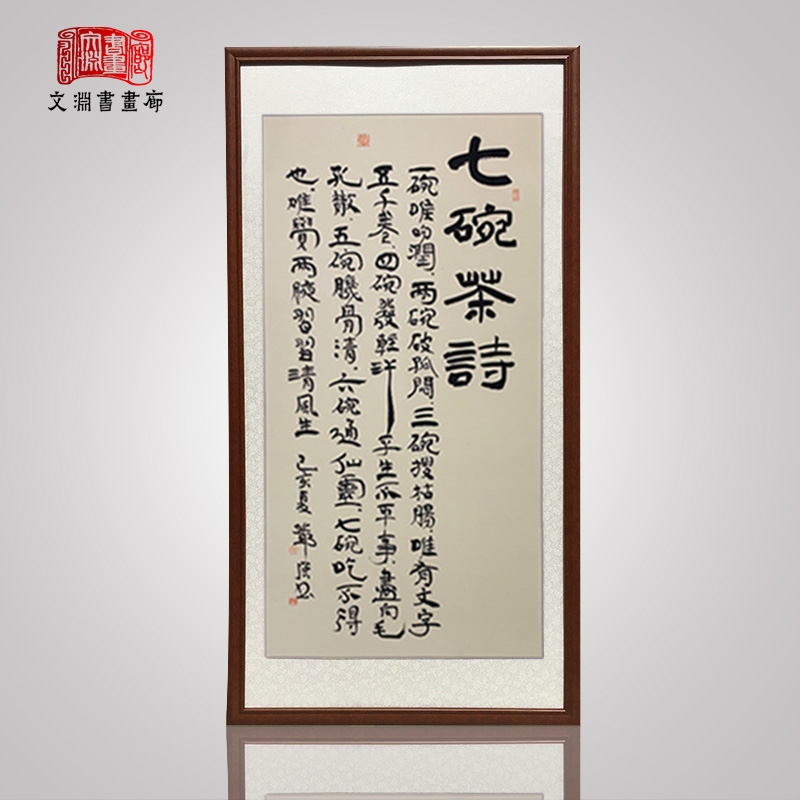 文淵書畫廊
七碗茶詩
一碗喉吻潤,两碗破孤悶,三碗搜枯腸,唯有文字
五千卷,四碗發輕汗,平生不平事,盡向毛
孔散,五碗肌骨清,六碗通仙靈,七碗吃不得
也,唯覺两腋習習清風生 己亥夏 鄭